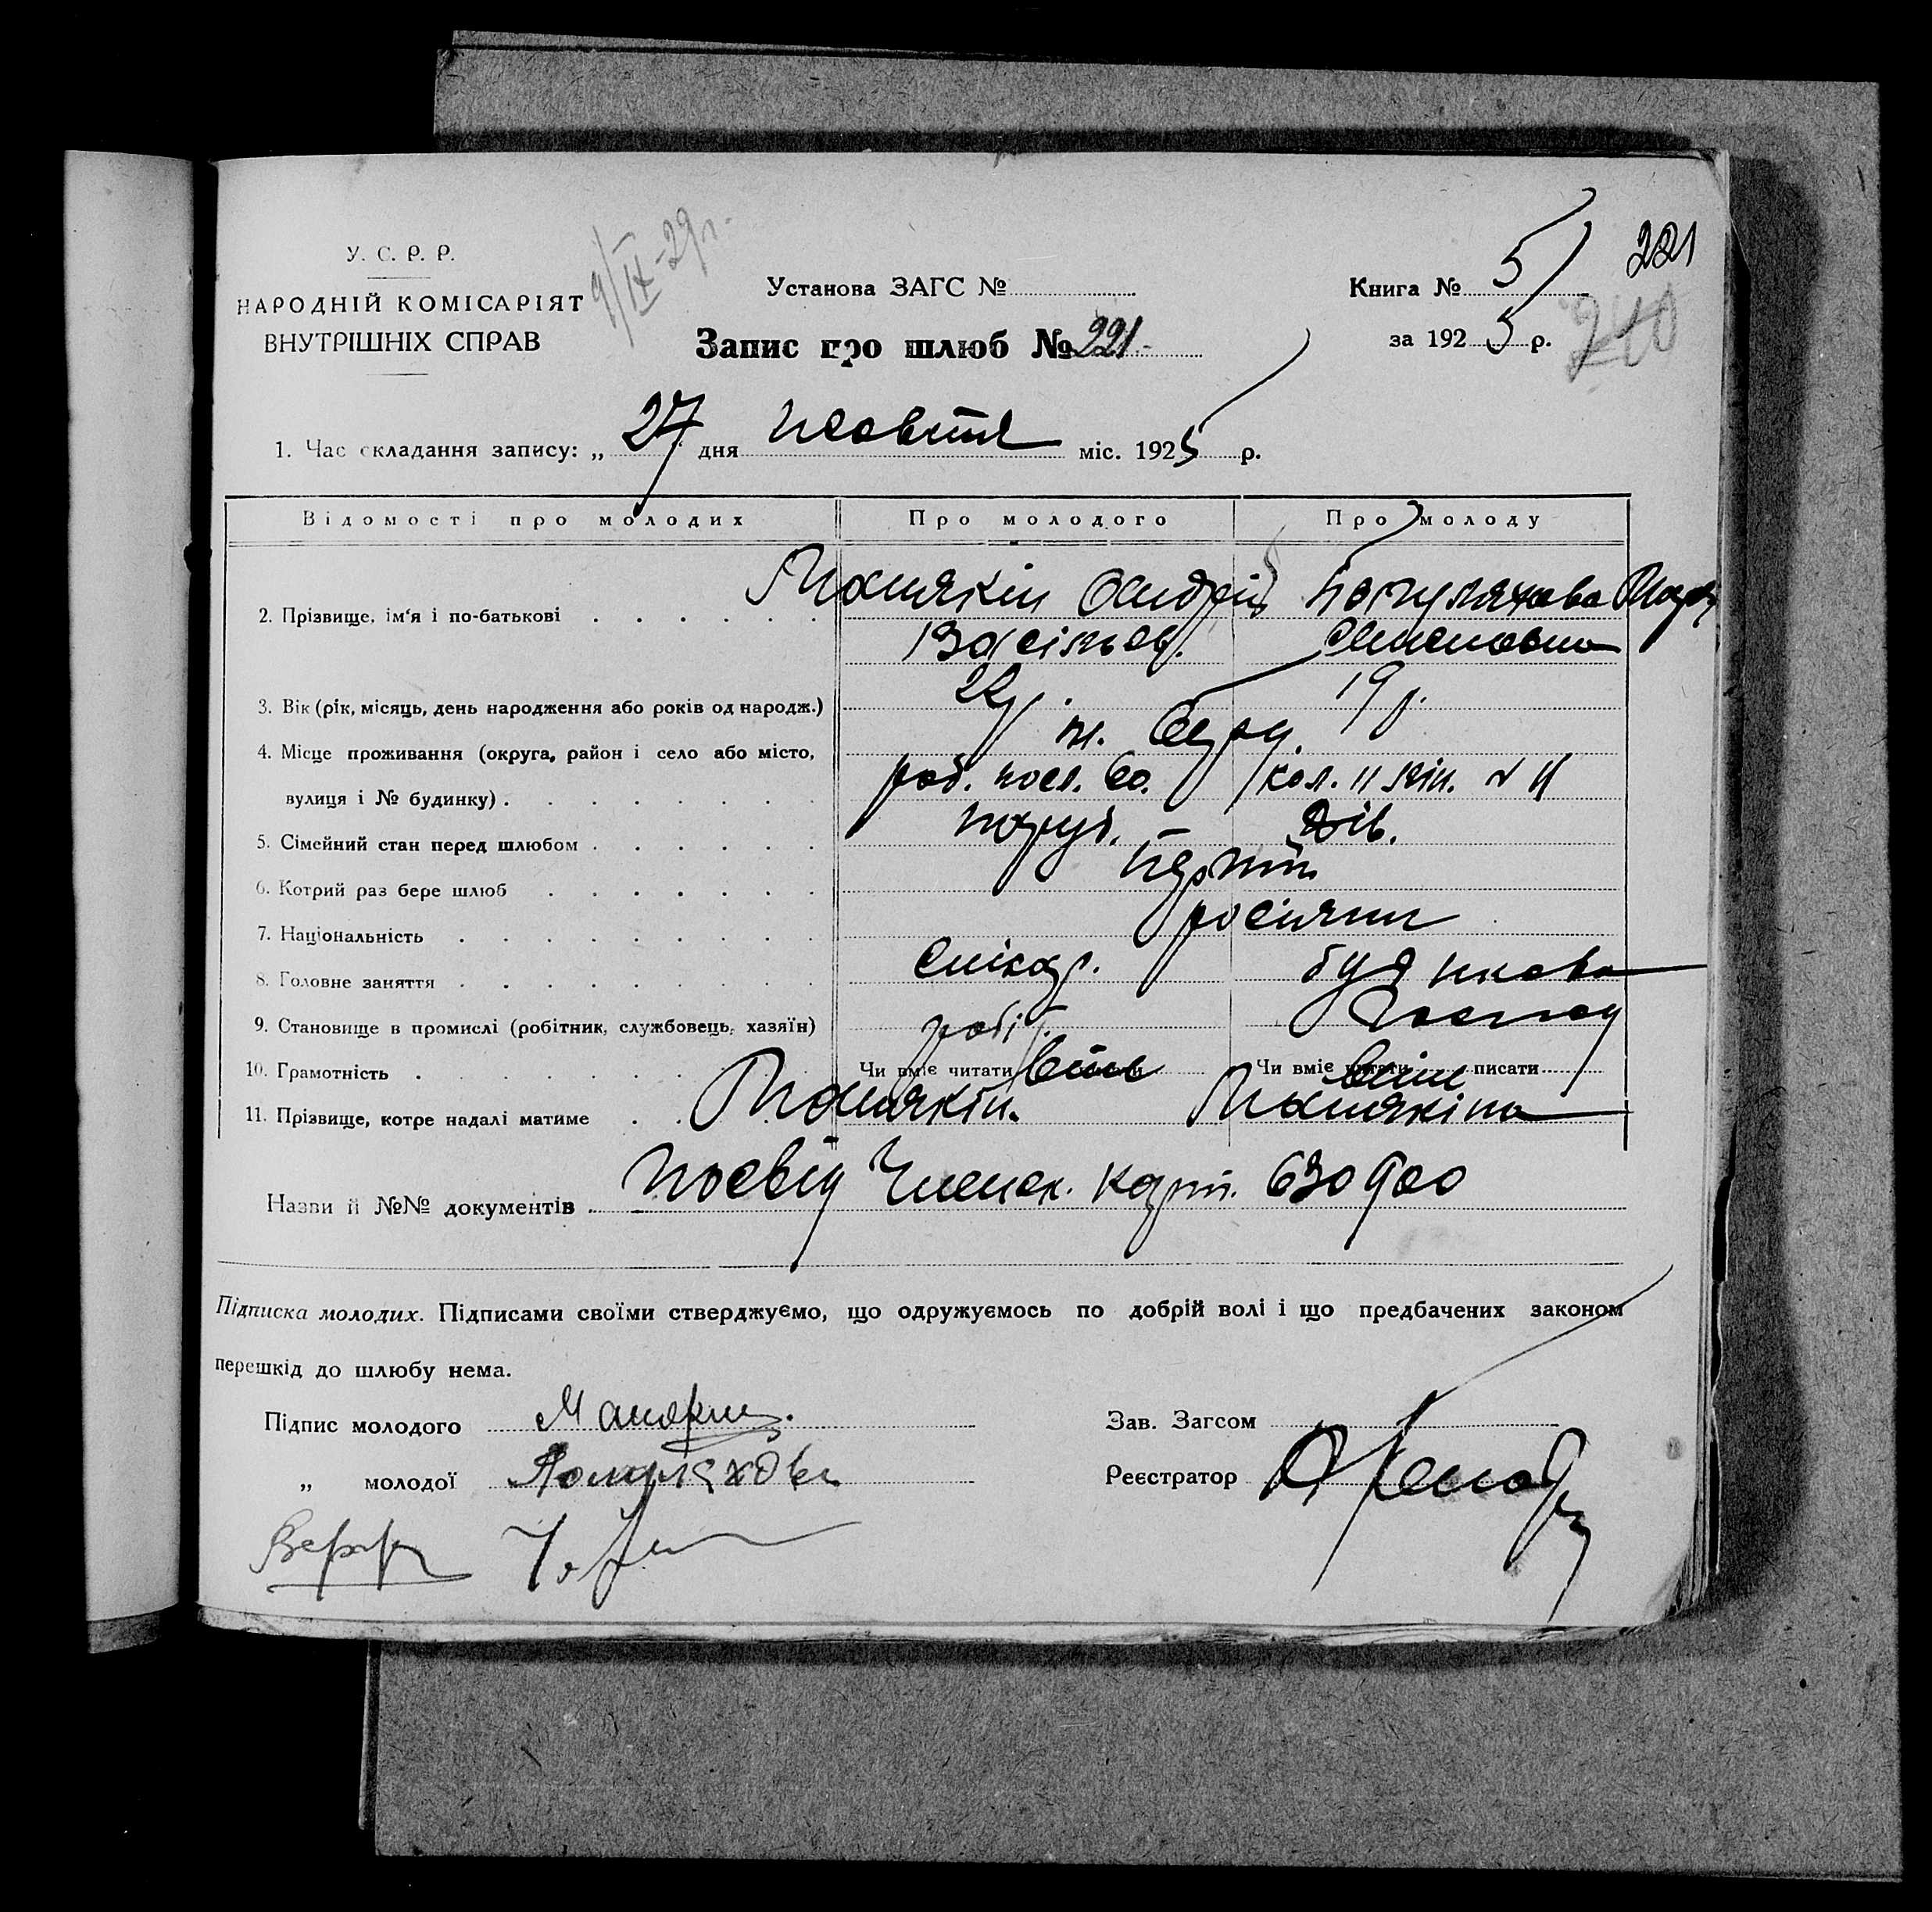 У. С. Р. Р.
НАРОДНІЙ КОМІСАРІЯТ
ВНУТРІШНІХ СПРАВ
9/IX-29 г.
Установа ЗАГС №
Запис про шлюб № 221
Книга № 5
221
за 1925 р.
240
1. Час складання запису: „ 27 " дня Жовтня міс. 1925 р.
Відомості про молодих Про молодого Про молоду
2. Прізвище, ім'я і по-батькові Манякін Андрій
Васільов. Семеновна
3. Вік (рік, місяць, день народження або років од народж.) 22 р. 19 р.
4. Місце проживання (округа, район і село або місто, м.
вулиця і № будинку) роб. посел. кол. 11 лін. № 11
5. Сімейний стан перед шлюбом паруб. Дів.
6. Котрий раз бере шлюб Перший
7. Національність росіяни
8. Головне заняття слюсар.
9. Становище в промислі (робітник, службовець, хазяїн) робіт.
10. Грамотність Чи вміє читати писати Чи вміє читати писати
11. Прізвище, котре надалі матиме Манякін Манякіна
Назви й №№ документів посвід Членск. карт. 630900
Підписка молодих. Підписами своїми стверджуємо, що одружуємось по добрій волі і що предбачених законом
перешкід до шлюбу нема.
Підпис молодого Манякин.
„ молодої
Зав. Загсом
Реєстратор